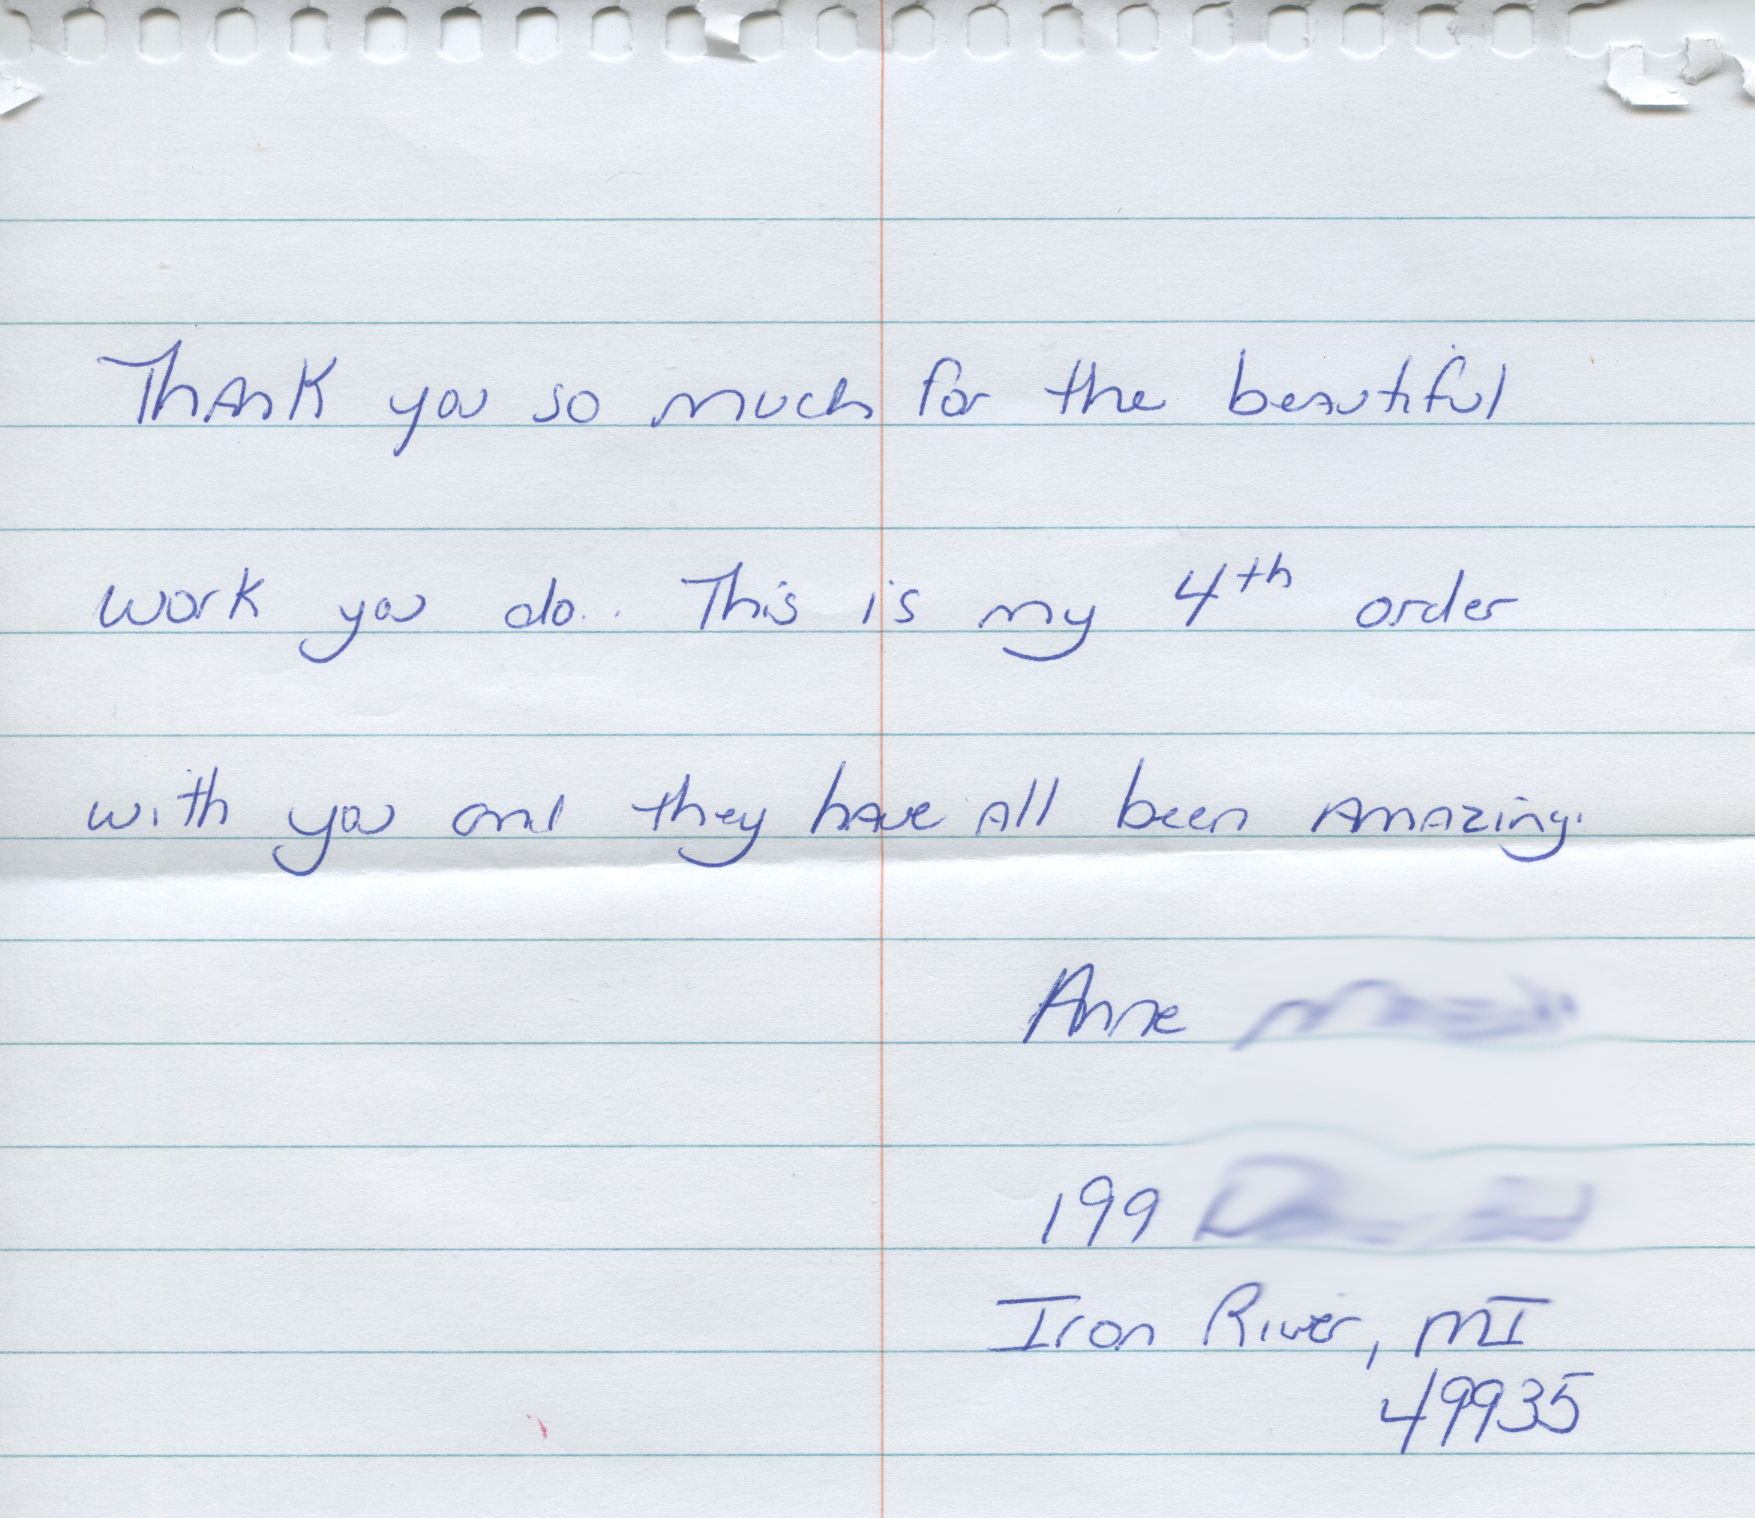 Thank you so much for the beautiful
work you do. This is my 4th order
with you and they have all been amazing.
Anne
199
Iron River, MI
49935